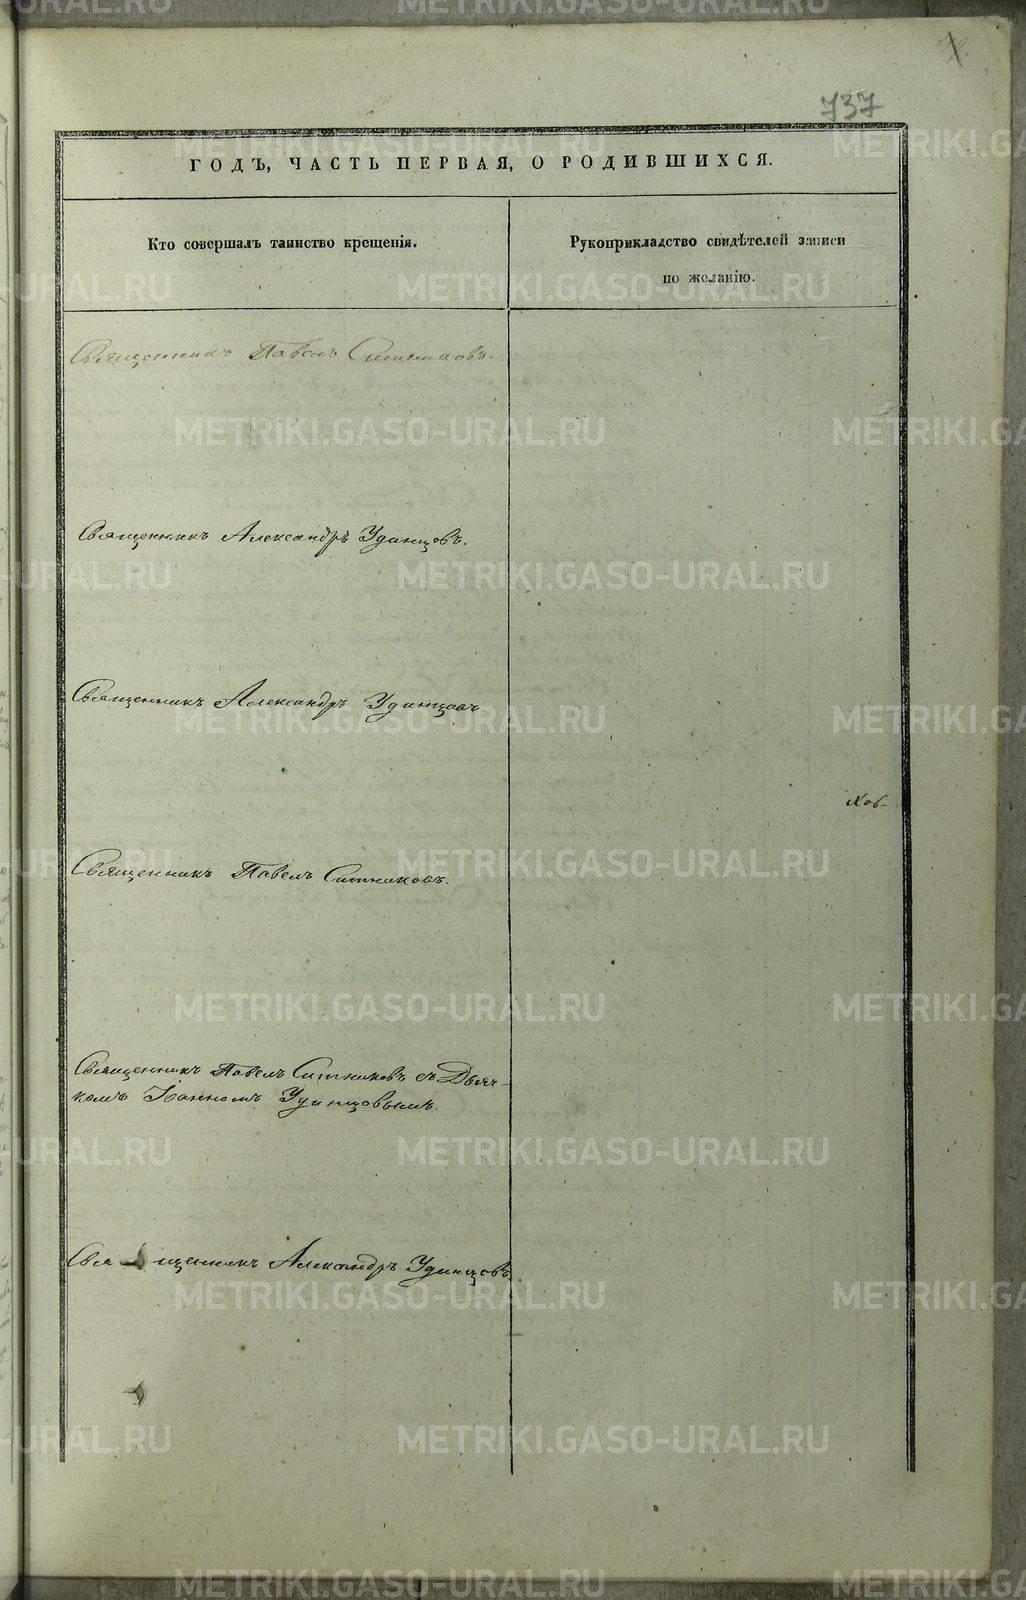 737
ГОДЪ, ЧАСТЬ ПЕРВАЯ, О РОДИВШИХСЯ.
Кто совершалъ таинство крещенія.
Рукоприкладство свидѣтелей записи
по желанію.
Священникъ Павелъ Ситниковъ.
Священникъ Александръ Удинцовъ.
Священникъ Александръ Удинцовъ
Священникъ Павелъ Ситниковъ.
Священникъ Павелъ Ситниковъ съ Дьяч-
комъ Іоанномъ Удинцовымъ.
Священникъ Александръ Удинцовъ
METRIKI.GASO-URAL.RU